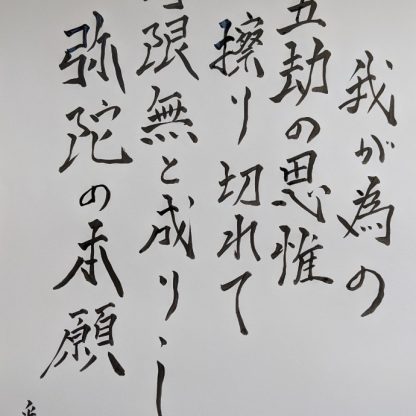 我が為の
五劫の思惟
擦り切れて
限無と成りし
弥陀の本願